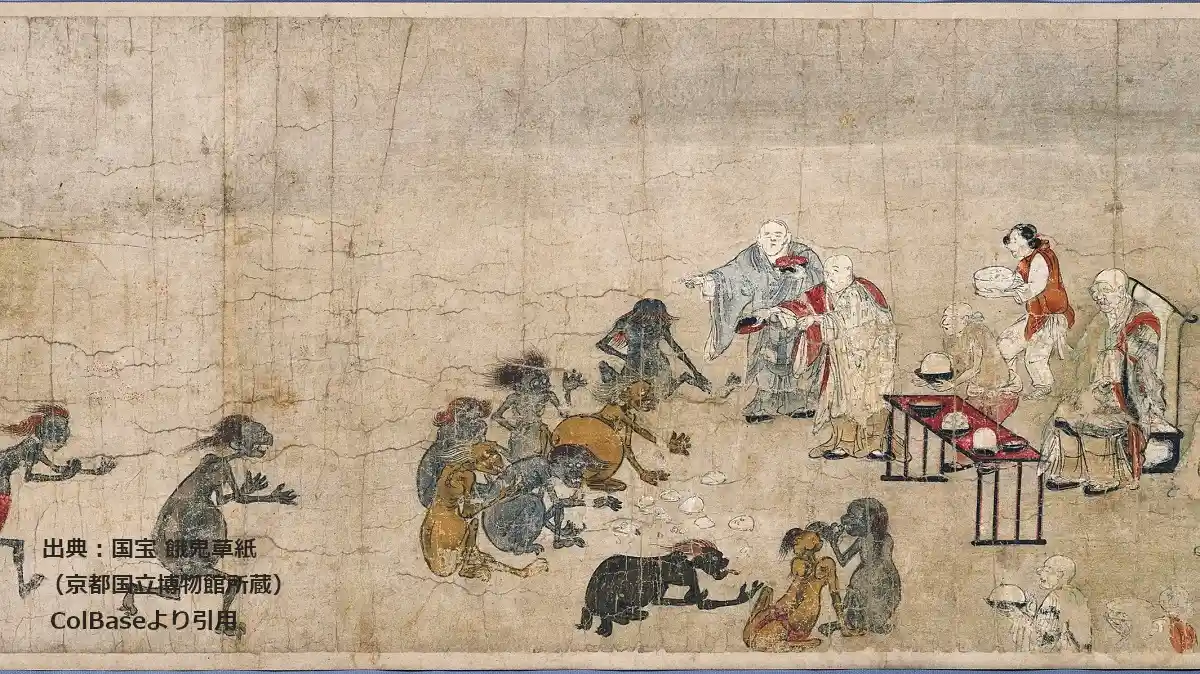 出典：国宝 餓鬼草紙
（京都国立博物館所蔵）
ColBaseより引用